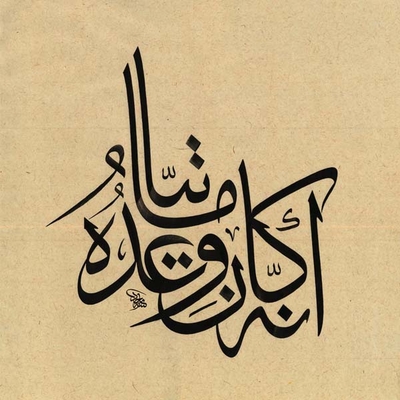 إنه كان وعده مأتيا